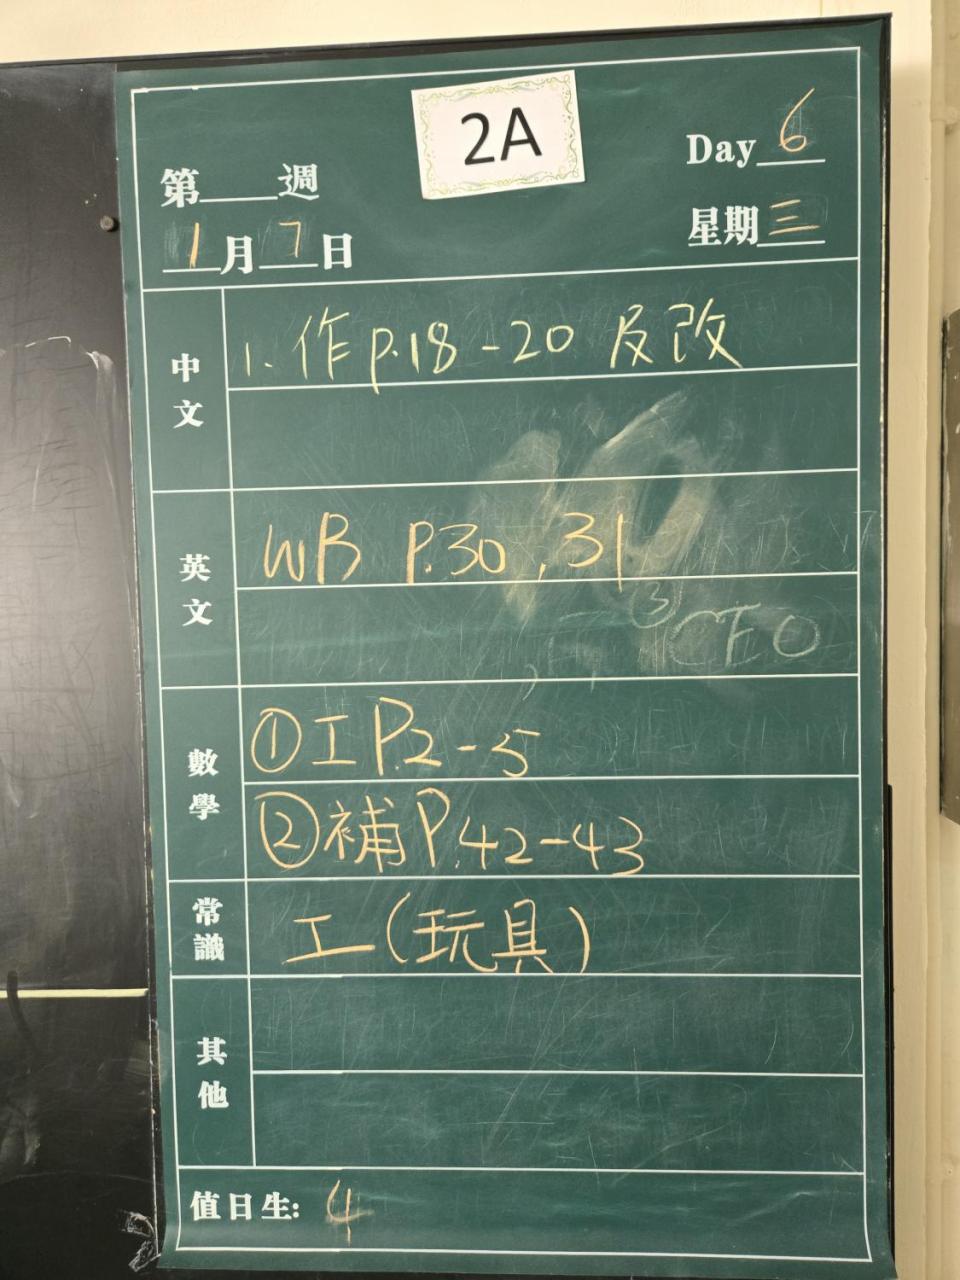 2A
Day 6
第___週
1月7日 星期三
中文
1. 作 p.18-20 及改
英文
WB P.30, 31
CFO
數學
①工 P.2-5
②補 P.42-43
常識
工(玩具)
其他
值日生: 4